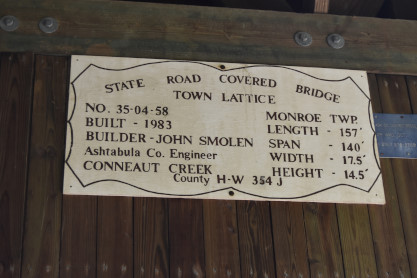 STATE ROAD COVERED BRIDGE
TOWN LATTICE
NO. 35-04-58
BUILT - 1983
BUILDER - JOHN SMOLEN
Ashtabula Co. Engineer
CONNEAUT CREEK
County H-W 354 J
MONROE TWP.
LENGTH - 157'
SPAN - 140'
WIDTH - 17.5'
HEIGHT - 14.5'